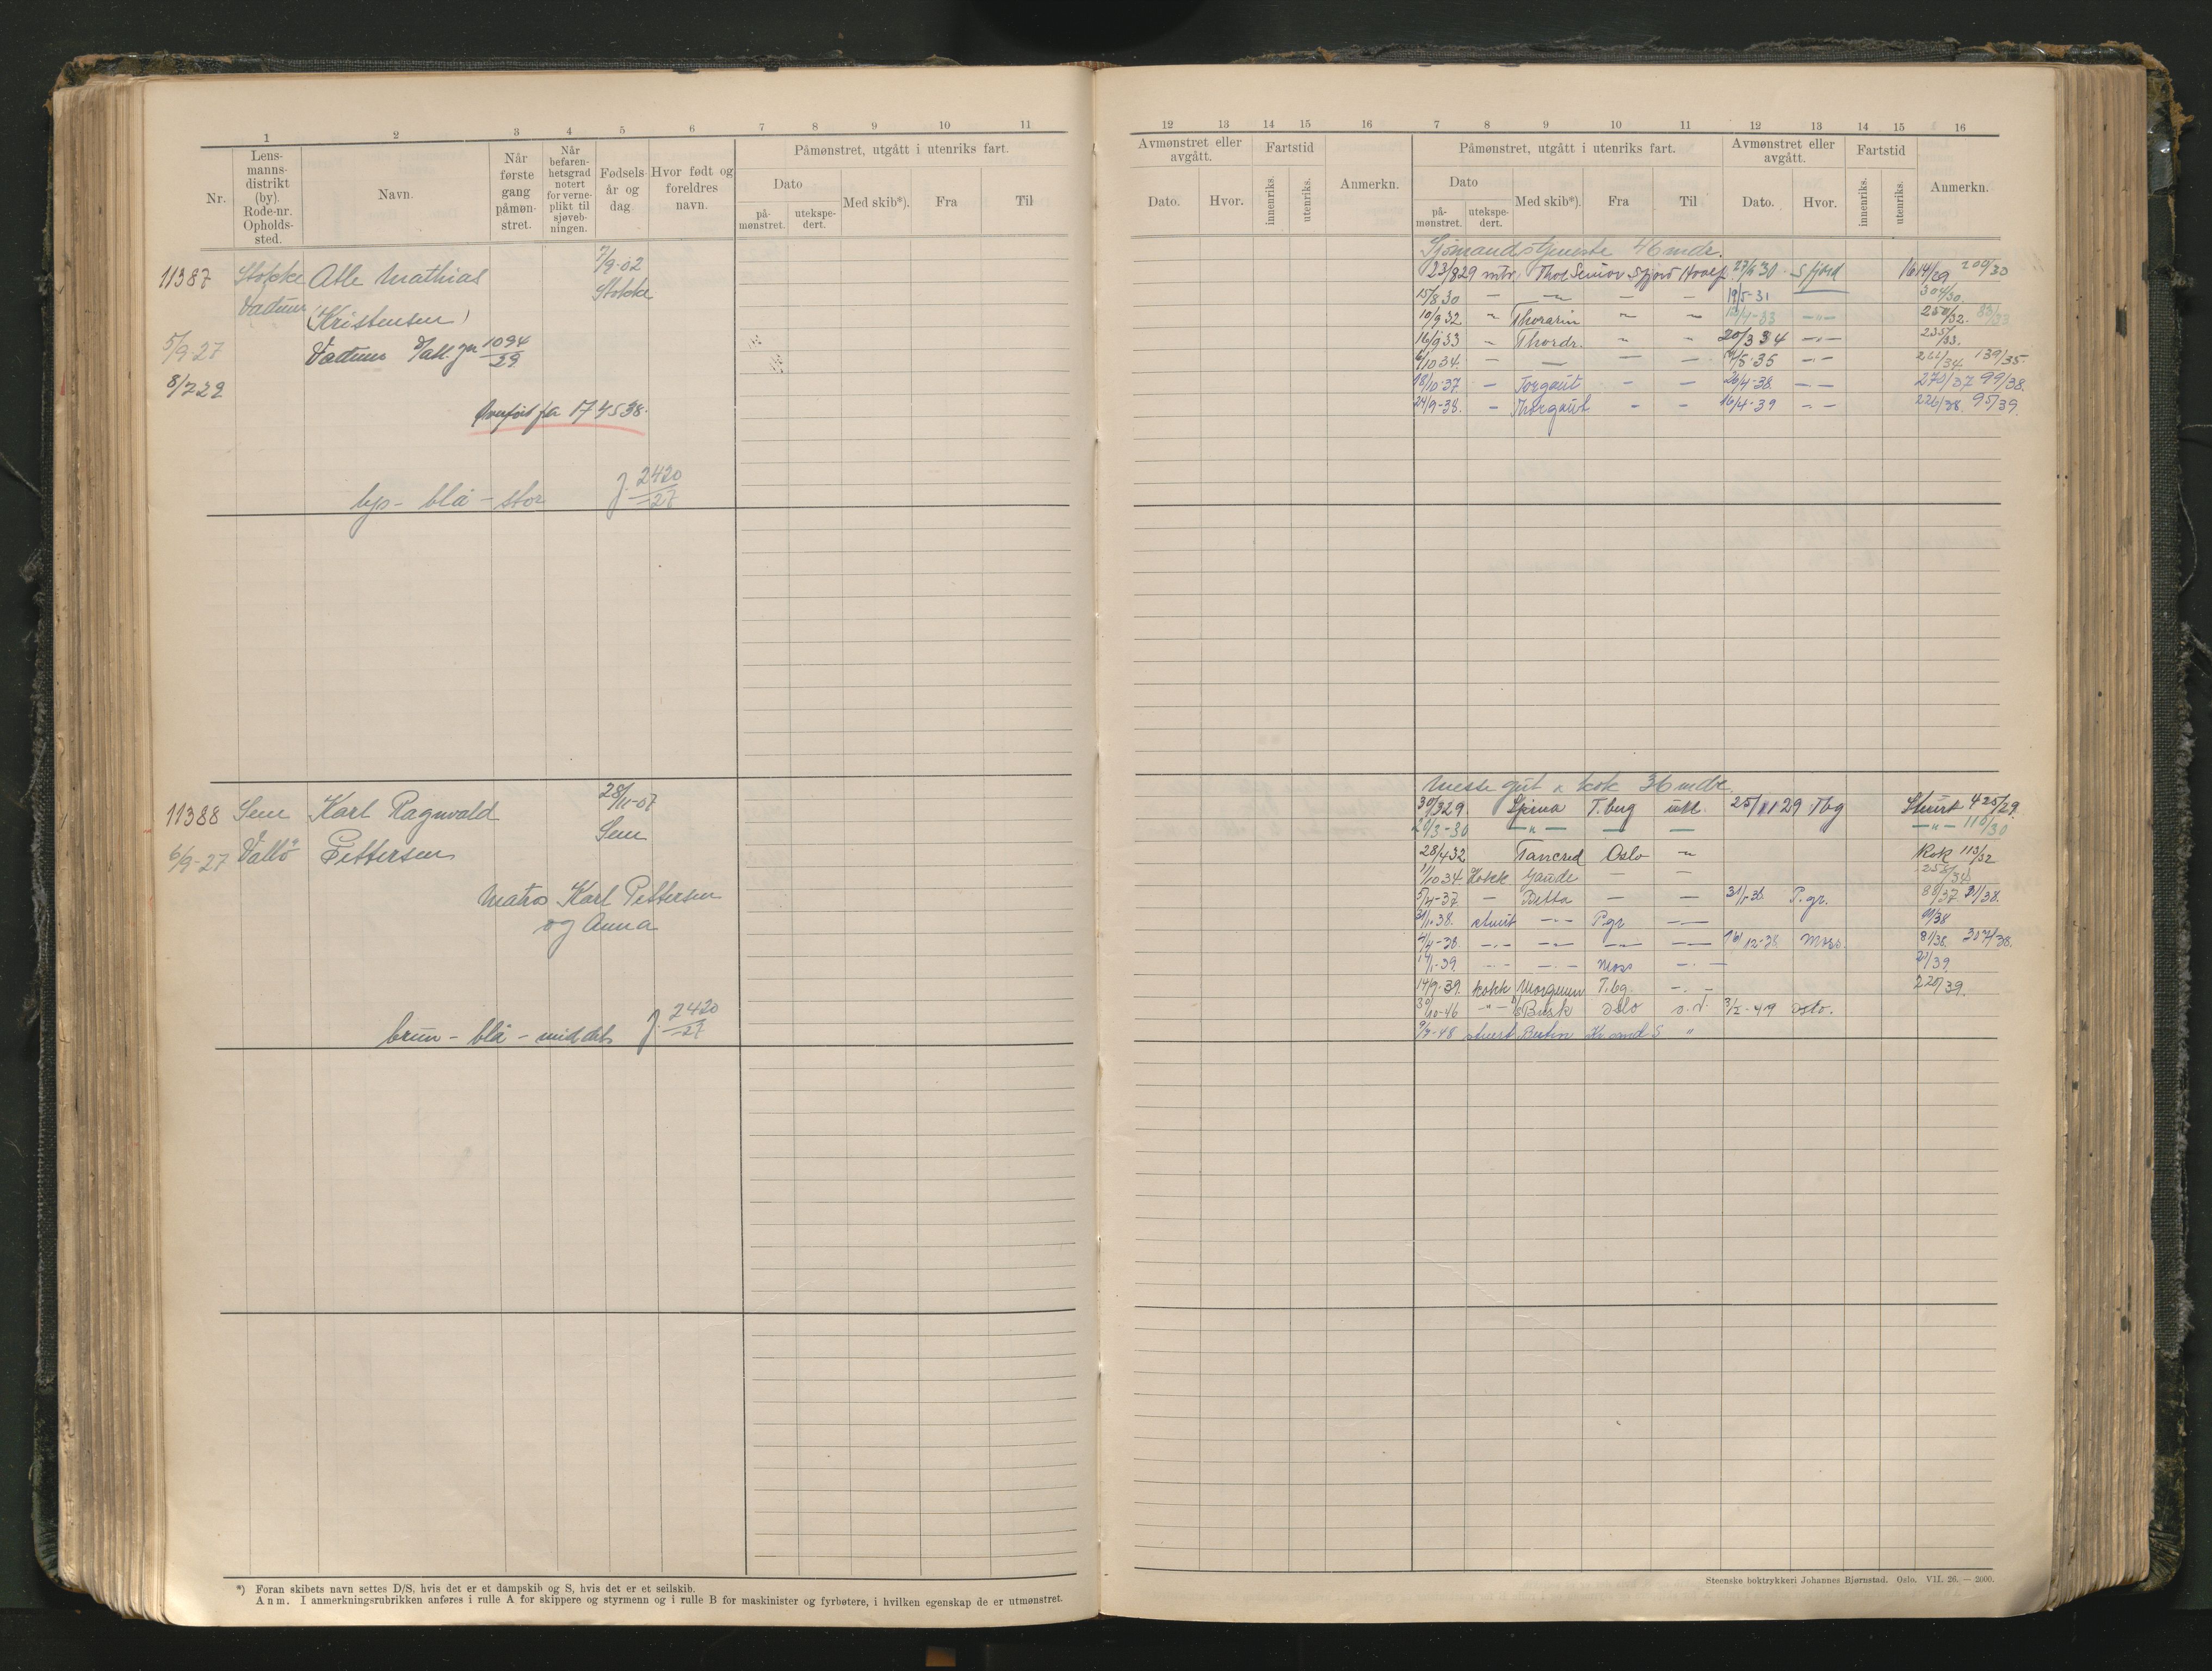 1 2 3 4 5 6 7 8 9 10 11
Nr.
Lens-
manns-
distrikt
(by).
Rode-nr.
Opholds-
sted.
Navn.
Når
første
gang
påmøn-
stret.
Når
befaren-
hetsgrad
notert
for verne-
plikt til
sjøveb-
ningen.
Fødsels-
år og
dag
Hvor født og
foreldres
navn.
Påmønstret, utgått i utenriks fart.
Dato
på-
mønstret.
utekspe-
dert.
Med skib*).
Fra
Til
11387 Stokke Atle Mathias 7/9-02
Stokke
(Kristensen)
5/9-27
1094/29
8/7 29
17 4538.
lys - blå - stor J. 2420/-27
11388 Sem Karl Ragnvald 28/11-07
Sem
6/9-27 Vallø Pettersen
Matros Karl Pettersen
og Anna
brun - blå - middels J. 2420/-27
*) Foran skibets navn settes D/S, hvis det er et dampskib og S, hvis det er et seilskib.
Anm. I anmerkningsrubrikken anføres i rulle A for skippere og styrmenn og i rulle B for maskinister og fyrbøtere, i hvilken egenskap de er utmønstret.
12 13 14 15 16 7 8 9 10 11 12 13 14 15 16
Avmønstret eller
avgått.
Dato.
Hvor.
Fartstid
innenriks.
utenriks.
Anmerkn.
Påmønstret, utgått i utenriks fart.
Dato
på-
mønstret.
utekspe-
dert.
Med skib*).
Fra
Til
Avmønstret eller
avgått.
Dato.
Hvor.
Fartstid
innenriks.
utenriks.
Anmerkn.
Sjømandstjeneste 46 mdr.
23/8 29 mtr. Thor Senior Sfjord Hvalf. 30 Sfjord 200/30
15/8 30 — — — — 19/5-31 304/30.
10/9 32 " Thorarin " " -33 —"— 250/32. 83/33
16/9 33 " Thordr. " " 20/3 34 —"— 235/33.
6/10 34. — — — — /5-35 —"— /34 139/35.
18/10-37 — Torgaut — — 26/4-38 — — 270/37 99/38.
24/9-38. — Thorgaut — — 16/4-39 — — 226/38. 95/39.
Messegut & kok 36 mdr.
30/3 29. Spina T.berg utl. 25/11 29 Tbg Stuert 425/29.
/3-30 —"— — — —"— 110/30
28/4 32 Tancred Oslo " Kok 113/32
11/10 34. Kokk Gaude — — 258/34
-37 — Betta — — P.gr. 88/37 31/38.
-38. stuert —"— Pgr — /38
4/4-38. —"— —"— —"— — 16/12-38 Moss. 81/38. 307/38.
-39. —"— —"— Moss —"— /39
14/9-39. kokk Morgenen T.bg. —"— 220/39.
30/10-46 —"— Busk Oslo -49 Oslo.
-48 stuert Kr.sand S "
Steenske boktrykkeri Johannes Bjørnstad. Oslo. VII. 26. — 2000.